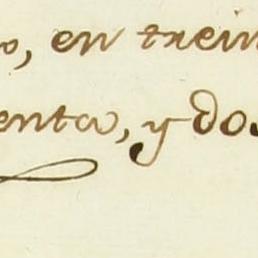 o, en trein
enta, y dos